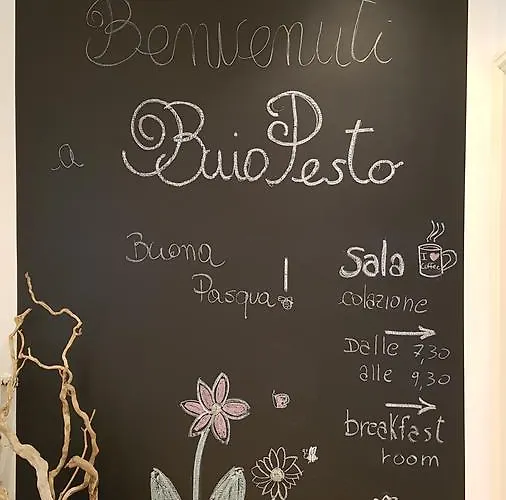 Benvenuti
a BuioPesto
Buona
Pasqua!
Sala
I ♥
Coffee
colazione
Dalle 7,30
alle 9,30
breakfast
room